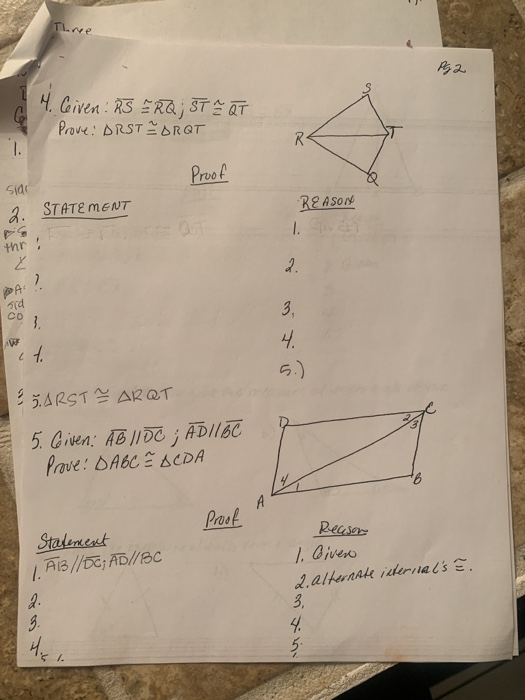 Three
Pg 2
4. Given: RS ≅ RQ; ST ≅ QT
Prove: △RST ≅ △RQT
S
R
T
Q
Proof
STATEMENT
REASON
1.
2.
2.
3.
3.
4.
4.
5.)
5. △RST ≅ △RQT
5. Given: AB // DC; AD // BC
Prove: △ABC ≅ △CDA
D
C
2
3
4
1
A
B
Proof
Statement
Reason
1. AB // DC; AD // BC
1. Given
2.
2. alternate interial's ≅.
3.
3.
4.
4.
5.
5.